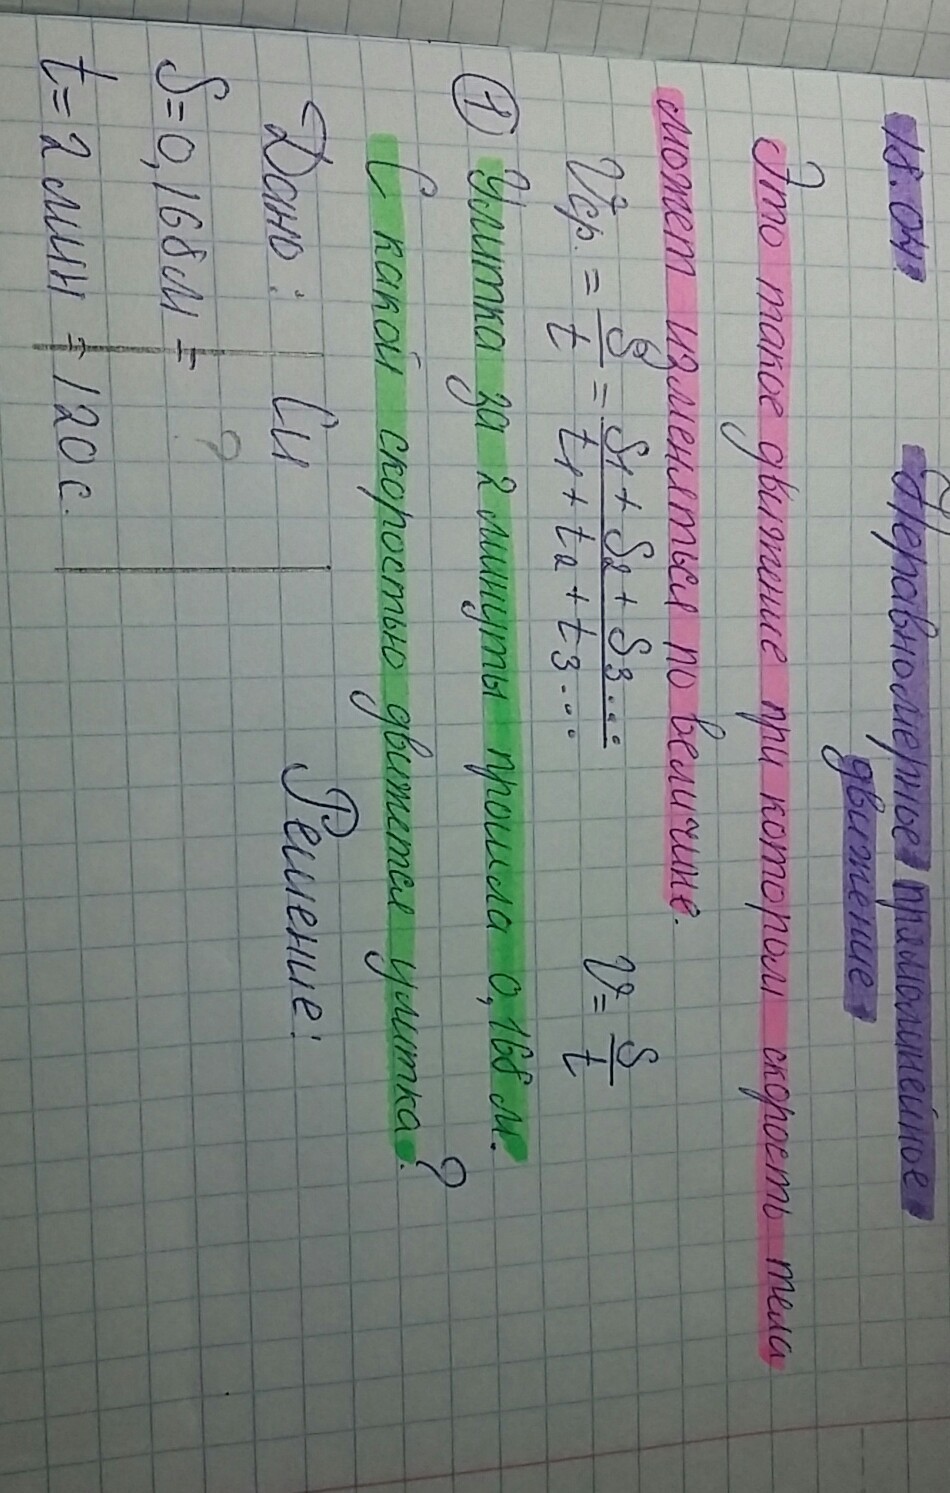 18.04. Неравномерное прямолинейное
движение
Это такое движение при котором скорость тела
может изменяться по величине.
Vср. = S/t = S1 + S2 + S3.../t1 + t2 + t3... V = S/t
① Улитка за 2 минуты прошла 0,168 м.
С какой скоростью движется улитка.?
Дано: Си Решение:
S = 0,168м = ?
t = 2 мин = 120 с.